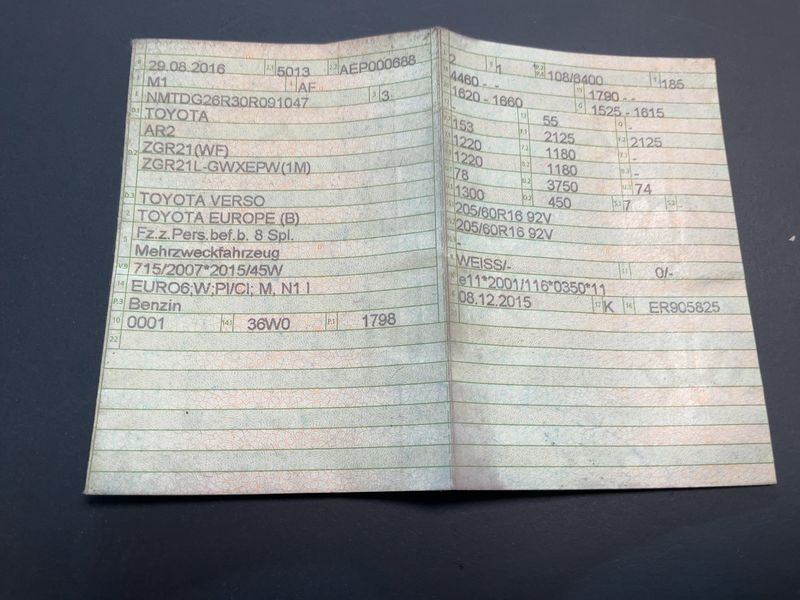 B 29.08.2016 2.1 5013 2.2 AEP000688
J M1 4 AF
E NMTDG26R30R091047 3 3
D.1 TOYOTA
AR2
D.2 ZGR21(WF)
ZGR21L-GWXEPW(1M)
D.3 TOYOTA VERSO
2 TOYOTA EUROPE (B)
5 Fz.z.Pers.bef.b. 8 Spl.
Mehrzweckfahrzeug
V.9 715/2007*2015/45W
14 EURO6;W;PI/CI; M, N1 I
P.3 Benzin
10 0001 14.1 36W0 P.1 1798
22
2 9 1 P.2 P.4 108/6400 T 185
4460 - - 1790 - -
1620 - 1660 G 1525 - 1615
- 13 55 Q -
153 F.1 2125 F.2 2125
1220 1180 -
1220 1180 -
78 U.2 3750 U.3 74
1300 O.2 450 S.1 7 S.2 -
205/60R16 92V
205/60R16 92V
-
WEISS/- 11 0/-
e11*2001/116*0350*11
08.12.2015 17 K 16 ER905825